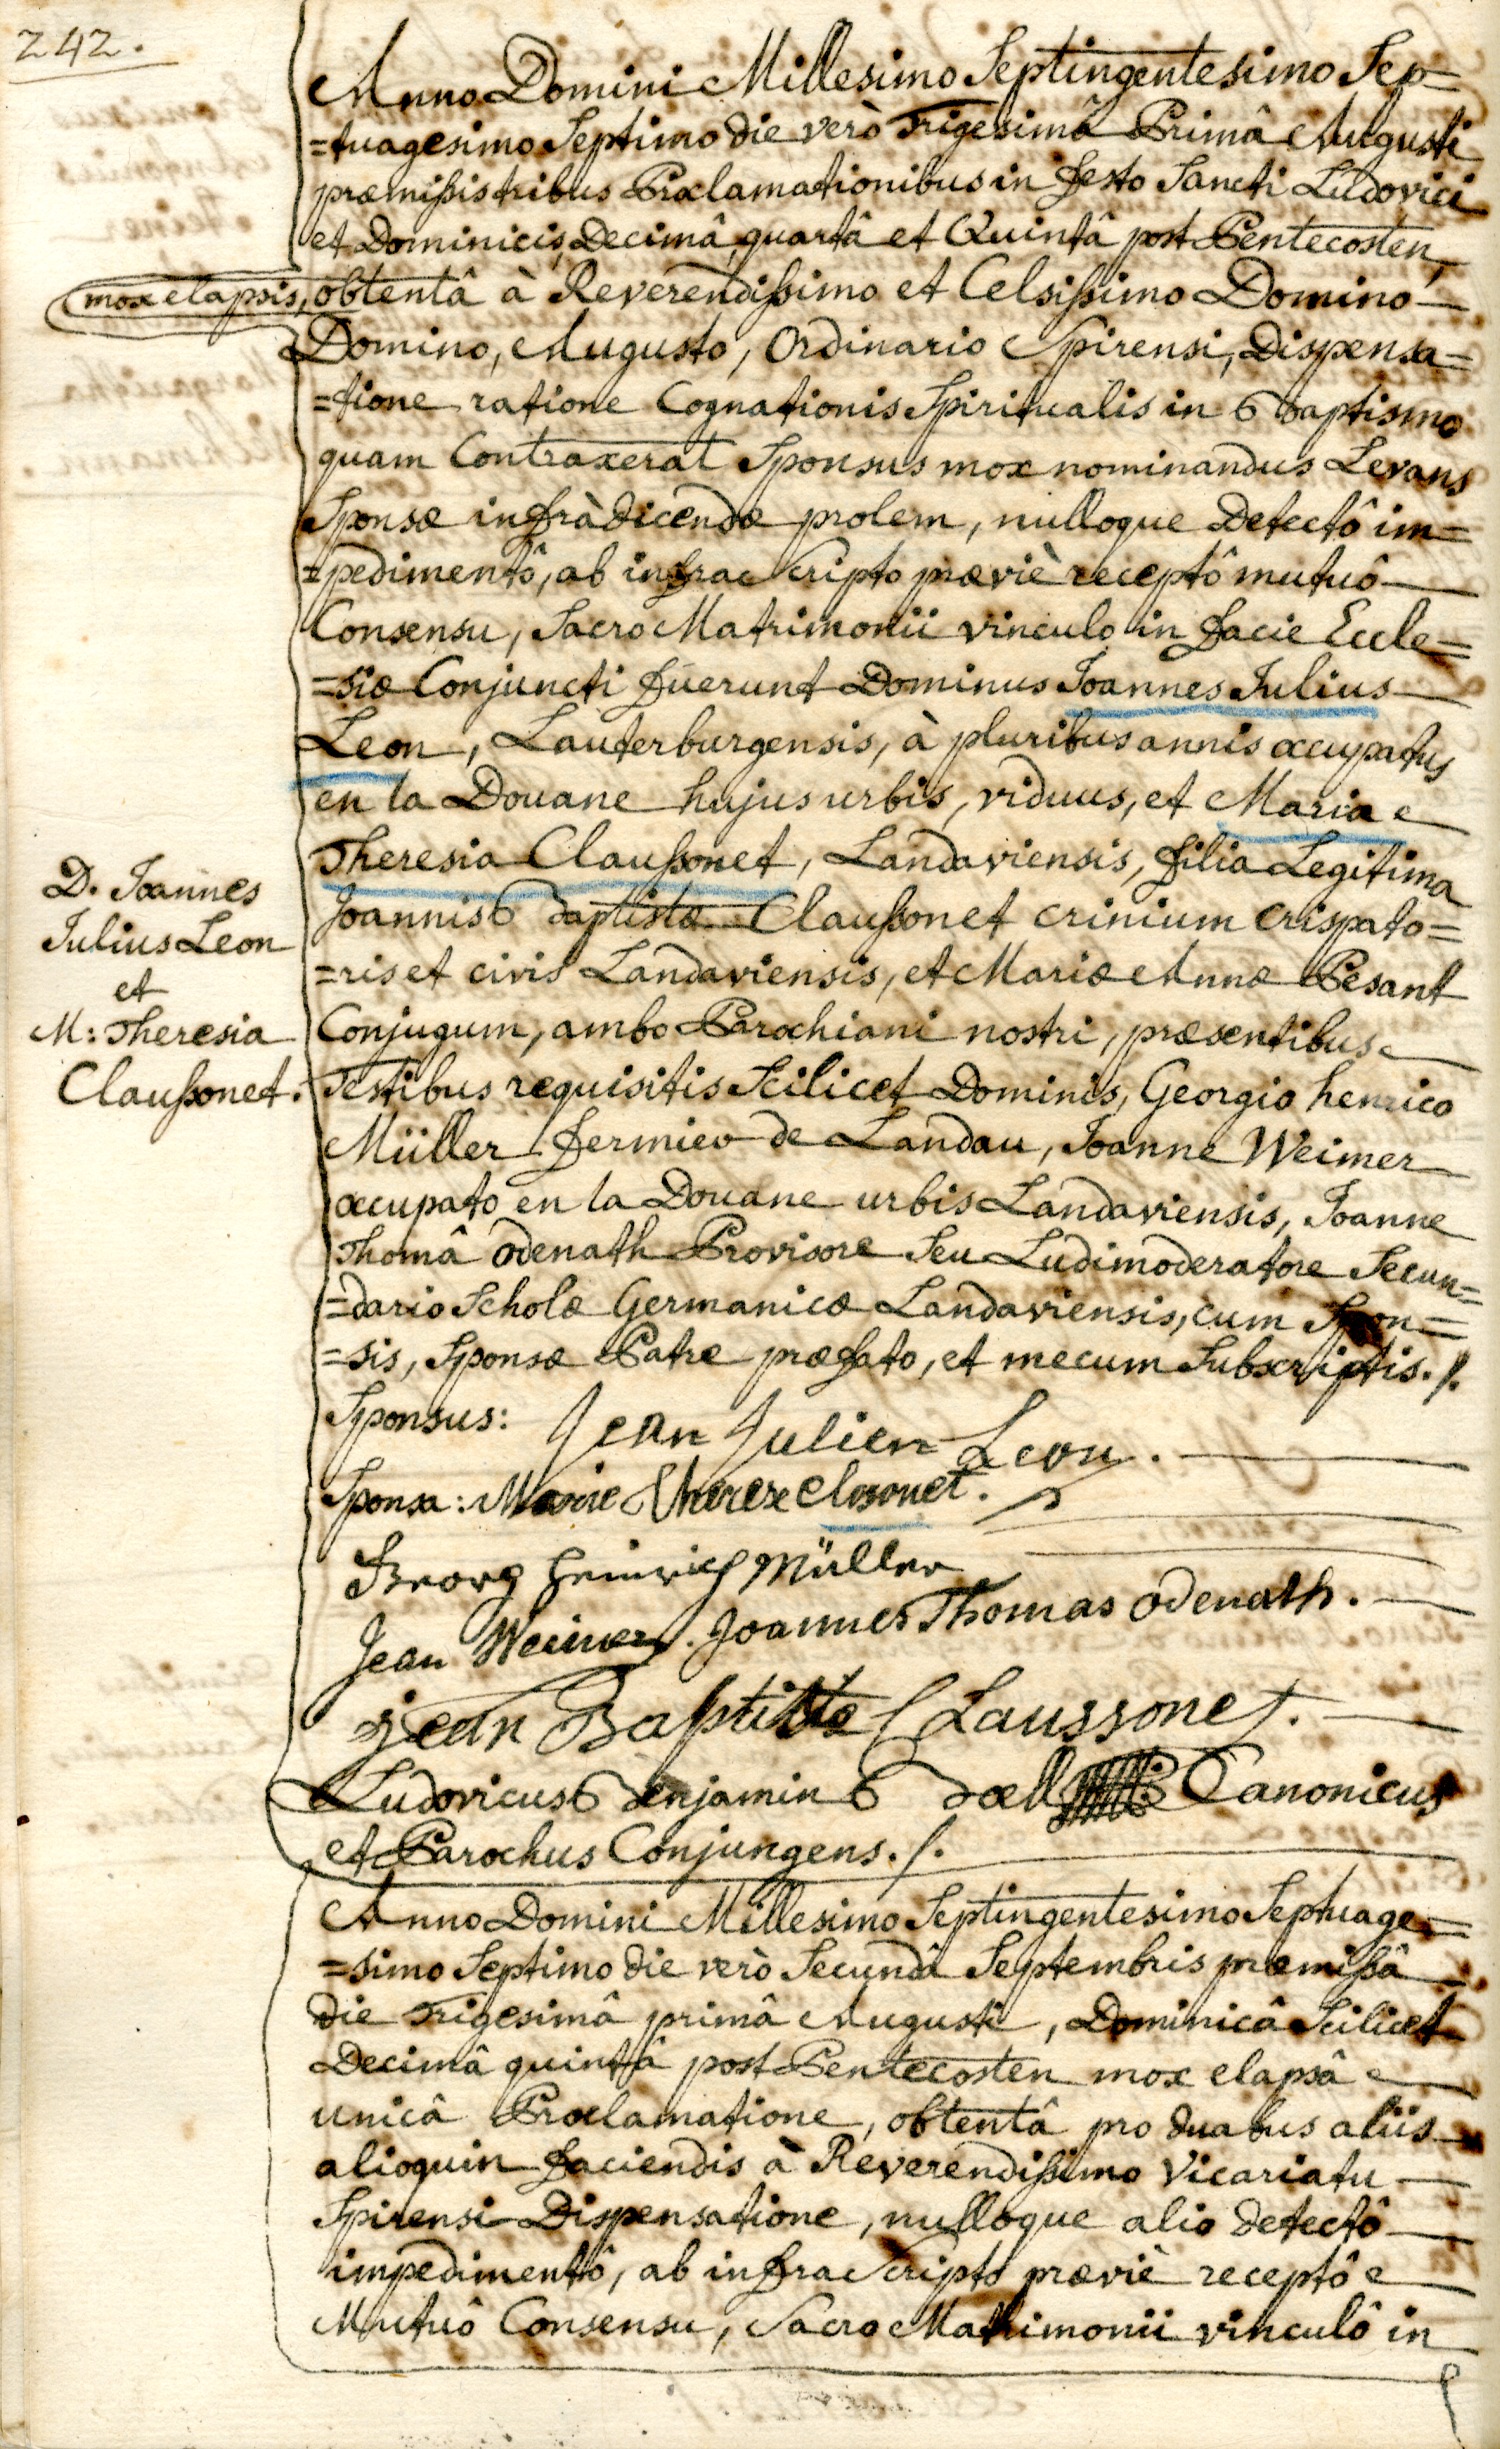 242.
Anno Domini Millesimo Septingentesimo Sep=
=tuagesimo Septimo die verò Trigesimâ Primâ Augusti
præmißis tribus Proclamationibus in festo Sancti Ludovici
et Dominicis, Decimâ, quartâ et Quintâ post Pentecosten,
mox elapsis, obtentâ à Reverendißimo et Celsißimo Domino
Domino, Augusto, Ordinario Spirensi, Dispensa=
=tione ratione Cognationis Spiritualis in Baptismo
quam Contraxerat Sponsus mox nominandus Levans
Sponsæ infràdicendæ prolem, nulloque Detectô im=
=pedimentô, ab infra Scripto præviè receptô mutuô
Consensu, Sacro Matrimonii vinculo in facie Eccle=
=siæ Conjuncti fuerunt Dominus Joannes Julius
Leon, Lauterburgensis, à pluribus annis occupatus
en la Douane hujus urbis, viduus, et Maria
Theresia Claußonet, Landaviensis, filia Legitima
Joannis Baptistæ Claußonet crinium crispato=
=ris et civis Landaviensis, et Mariæ Annæ Pesant
D. Joannes
Julius Leon
et
M: Theresia
Claußonet.
Conjugum, ambo Parochiani nostri, præsentibus
Testibus requisitis Scilicet Dominis, Georgio henrico
Müller fermier de Landau, Joanne Weimer
occupato en la Douane urbis Landaviensis, Joanne
Thomâ Odenath Provisore Seu Ludimoderatore Secun=
=dario Scholæ Germanicæ Landaviensis, cum Spon=
=sis, Sponsæ Patre præfato, et mecum Subscriptis. /.
Sponsus: Jean Julien Leon.
Sponsa: Marie Therese closonet.
Georg Heinrich Müller
Jean Weimer. Joannes Thomas Odenath.
jean Baptiste Claussonet.
Ludovicus Benjamin Boell Canonicus
et Parochus Conjungens. /.
Anno Domini Millesimo Septingentesimo Septuage=
=simo Septimo die verò Secundâ Septembris præmißâ
die Trigesimâ primâ Augusti, Dominicâ Scilicet
Decimâ quintâ post Pentecosten mox elapsâ
unicâ Proclamatione, obtentâ pro duabus aliis
alioquin faciendis à Reverendißimo Vicariatu
Spirensi Dispensatione, nulloque alio detectô
impedimentô, ab infra Scripto præviè receptô
Mutuô Consensu, Sacro Matrimonii vinculô in